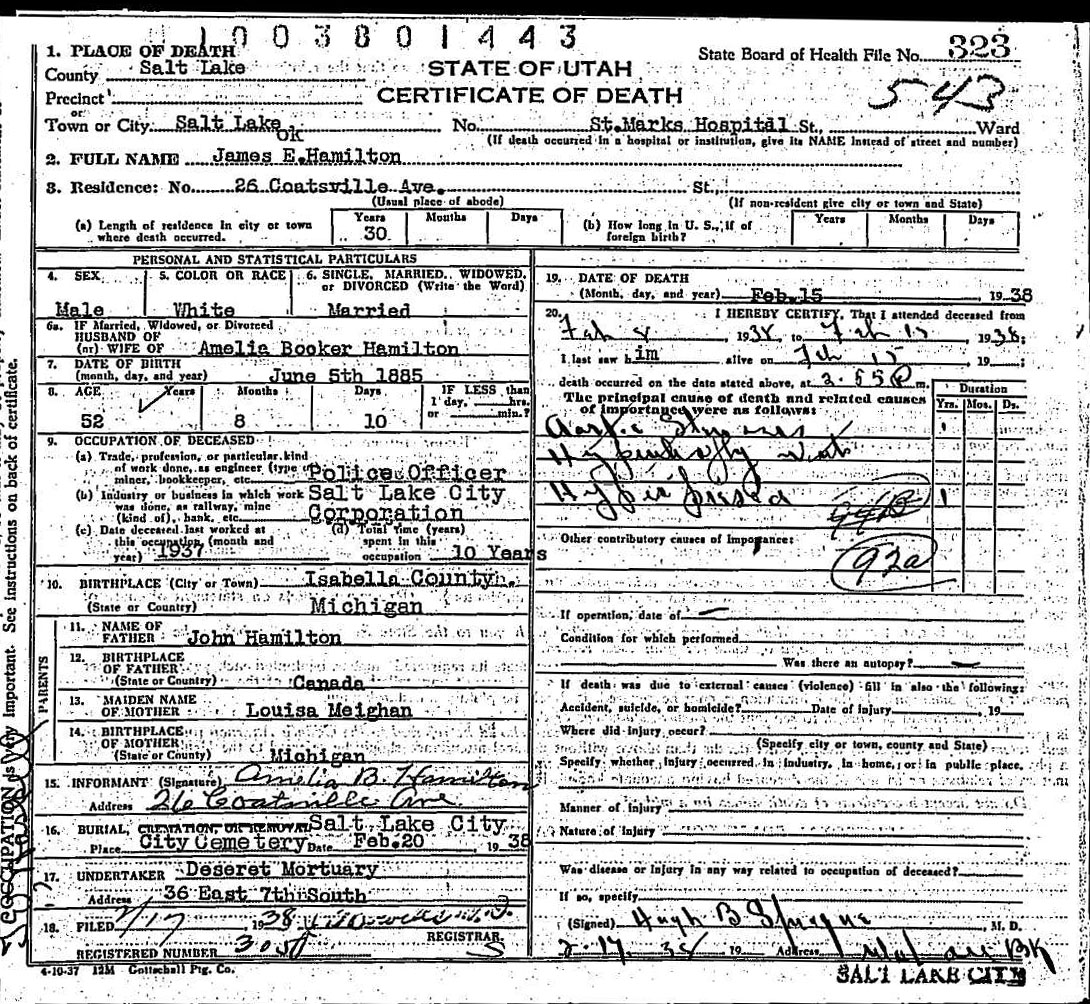 1003801443
1. PLACE OF DEATH
County Salt Lake
STATE OF UTAH
State Board of Health File No. 323
Precinct
CERTIFICATE OF DEATH
543
or
Town or City Salt Lake OK No. St. Marks Hospital St., Ward
(If death occurred in a hospital or institution, give its NAME instead of street and number)
2. FULL NAME James E. Hamilton
3. Residence: No. 26 Coatsville Ave. St.,
(Usual place of abode) (If non-resident give city or town and State)
(a) Length of residence in city or town where death occurred. Years 30 Months Days
(b) How long in U. S., if of foreign birth? Years Months Days
PERSONAL AND STATISTICAL PARTICULARS
4. SEX 5. COLOR OR RACE 6. SINGLE, MARRIED, WIDOWED, or DIVORCED (Write the Word)
Male White Married
6a. IF Married, Widowed, or Divorced
HUSBAND OF
(or) WIFE OF Amelia Booker Hamilton
7. DATE OF BIRTH
(month, day, and year) June 5th 1885
8. AGE Years Months Days IF LESS than
1 day, hrs.
or min.?
52 8 10
9. OCCUPATION OF DECEASED
(a) Trade, profession, or particular kind
of work done, as engineer (type
miner, bookkeeper, etc. Police Officer
(b) Industry or business in which work Salt Lake City
was done, as railway, mine
(kind of), bank, etc. Corporation
(c) Date deceased last worked at
this occupation (month and
year) 1937
(d) Total Time (years)
spent in this
occupation 10 Years
10. BIRTHPLACE (City or Town) Isabella County
(State or Country) Michigan
PARENTS
11. NAME OF
FATHER John Hamilton
12. BIRTHPLACE
OF FATHER
(State or Country) Canada
13. MAIDEN NAME
OF MOTHER Louisa Meighan
14. BIRTHPLACE
OF MOTHER
(State or County) Michigan
15. INFORMANT (Signature) Amelia B. Hamilton
Address 26 Coatsville Ave
16. BURIAL, CREMATION, OR REMOVAL Salt Lake City
Place City Cemetery Date Feb. 20 1938
17. UNDERTAKER Deseret Mortuary
Address 36 East 7th South
18. FILED 2/17 1938
REGISTRAR
REGISTERED NUMBER
4-10-37 12M Gottschall Ptg. Co.
19. DATE OF DEATH
(Month, day, and year) Feb. 15 1938
20. I HEREBY CERTIFY, That I attended deceased from
Feb 8 1938, to Feb 15 1938.
I last saw him alive on Feb 15 19
death occurred on the date stated above, at 2.55 P m.
The principal cause of death and related causes
of importance were as follows:
Duration
Yrs. Mos. Ds.
Aortic Stenosis
Other contributory causes of importance:
92a
If operation, date of —
Condition for which performed
Was there an autopsy? —
If death was due to external causes (violence) fill in also the following:
Accident, suicide, or homicide? Date of injury 19
Where did injury occur?
(Specify city or town, county and State)
Specify whether injury occurred in industry, in home, or in public place.
Manner of injury
Nature of injury
Was disease or injury in any way related to occupation of deceased?
If so, specify
(Signed) Hugh B Sprague M. D.
2-17-38 19 Address
SALT LAKE CITY
OCCUPATION is very important. See instructions on back of certificate.